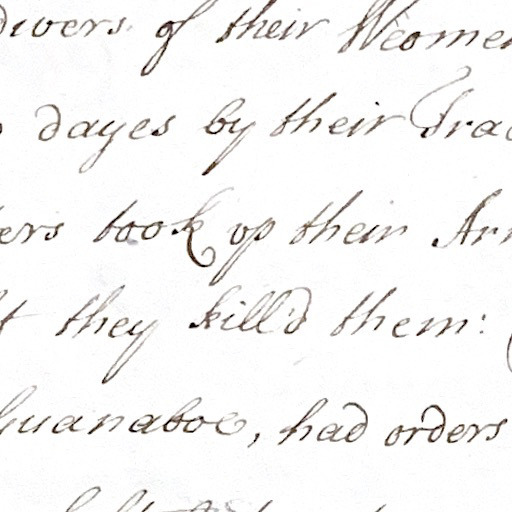 divers of their Weomen
dayes by their Trac
ers took up their Ar
they kill'd them:
Guanaboe, had orders